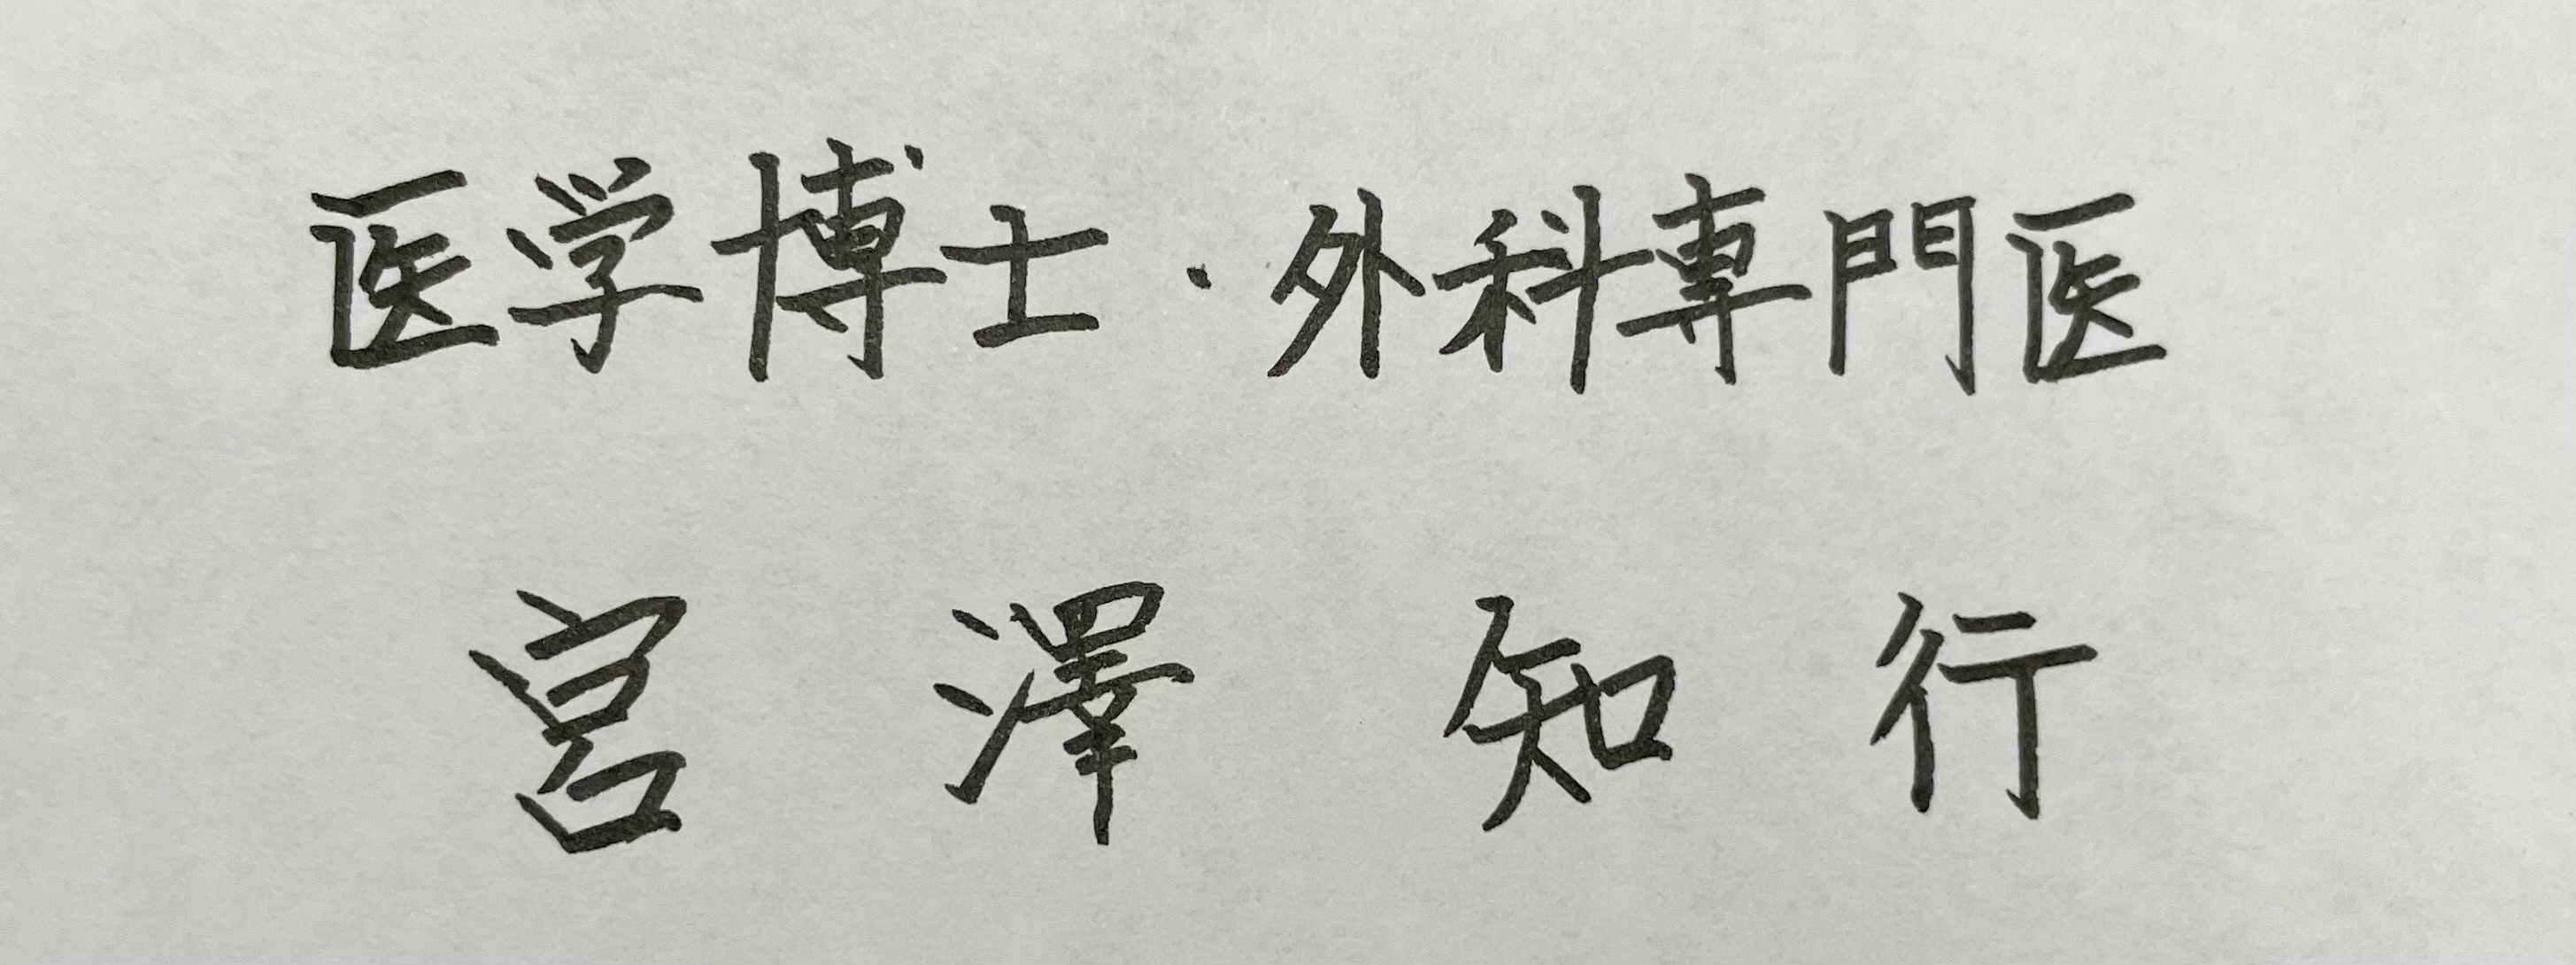 医学博士・外科専門医
宮澤知行